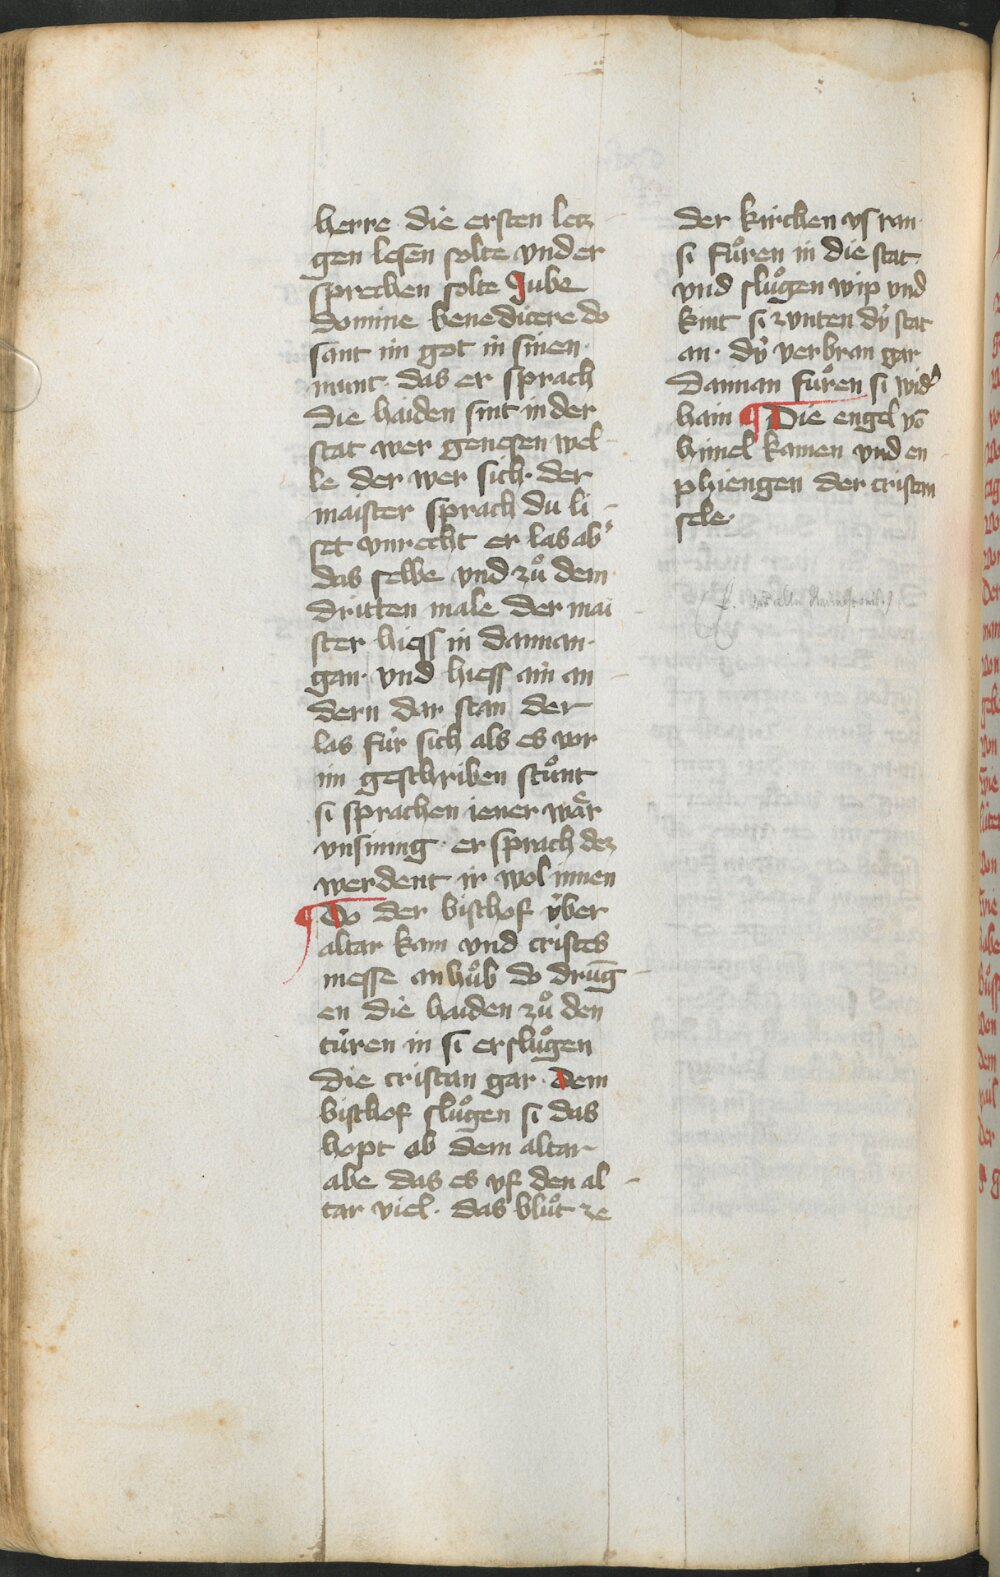 herre die ersten letz
gen lesen solte vnd er
sprechen solte Jube
Domine benedicere do
sant im got in sinen
munt das er sprach
Die haiden sint in der
stat wer genesen wel
le der wer sich · der
maister sprach du li
set vnrecht er las abʾ
das selbe vnd zuͦ dem
dritten male der mai
ster hiess in dannan
gan · vnd hiess ain an
dern dar stan der
las fúr sich als es vor
im geschriben stuͦnt
si sprachen iener waͤr
vnsinnig · er sprach dez
werdent ir wol innen
¶ Do der bischof v́ber
altar kam vnd cristes
messe an huͦb do drug̅
en die haiden zuͦ den
túren in si ersluͦgen
die cristan gar · Dem
bischof sluͦgen si das
hopt ob dem altar
abe das es vf den al
tar viel · das bluͦt ze
der kirchen vs ran ·
si fuͦren in die stat
vnd sluͦgen wip vnd
kint si zvnten dy̍ stat
an · dy̍ verbran gar
Dannan fuͦren si widʾ
hain ¶ Die engel vō
himel kamen vnd en
phiengen der cristan
sele ·